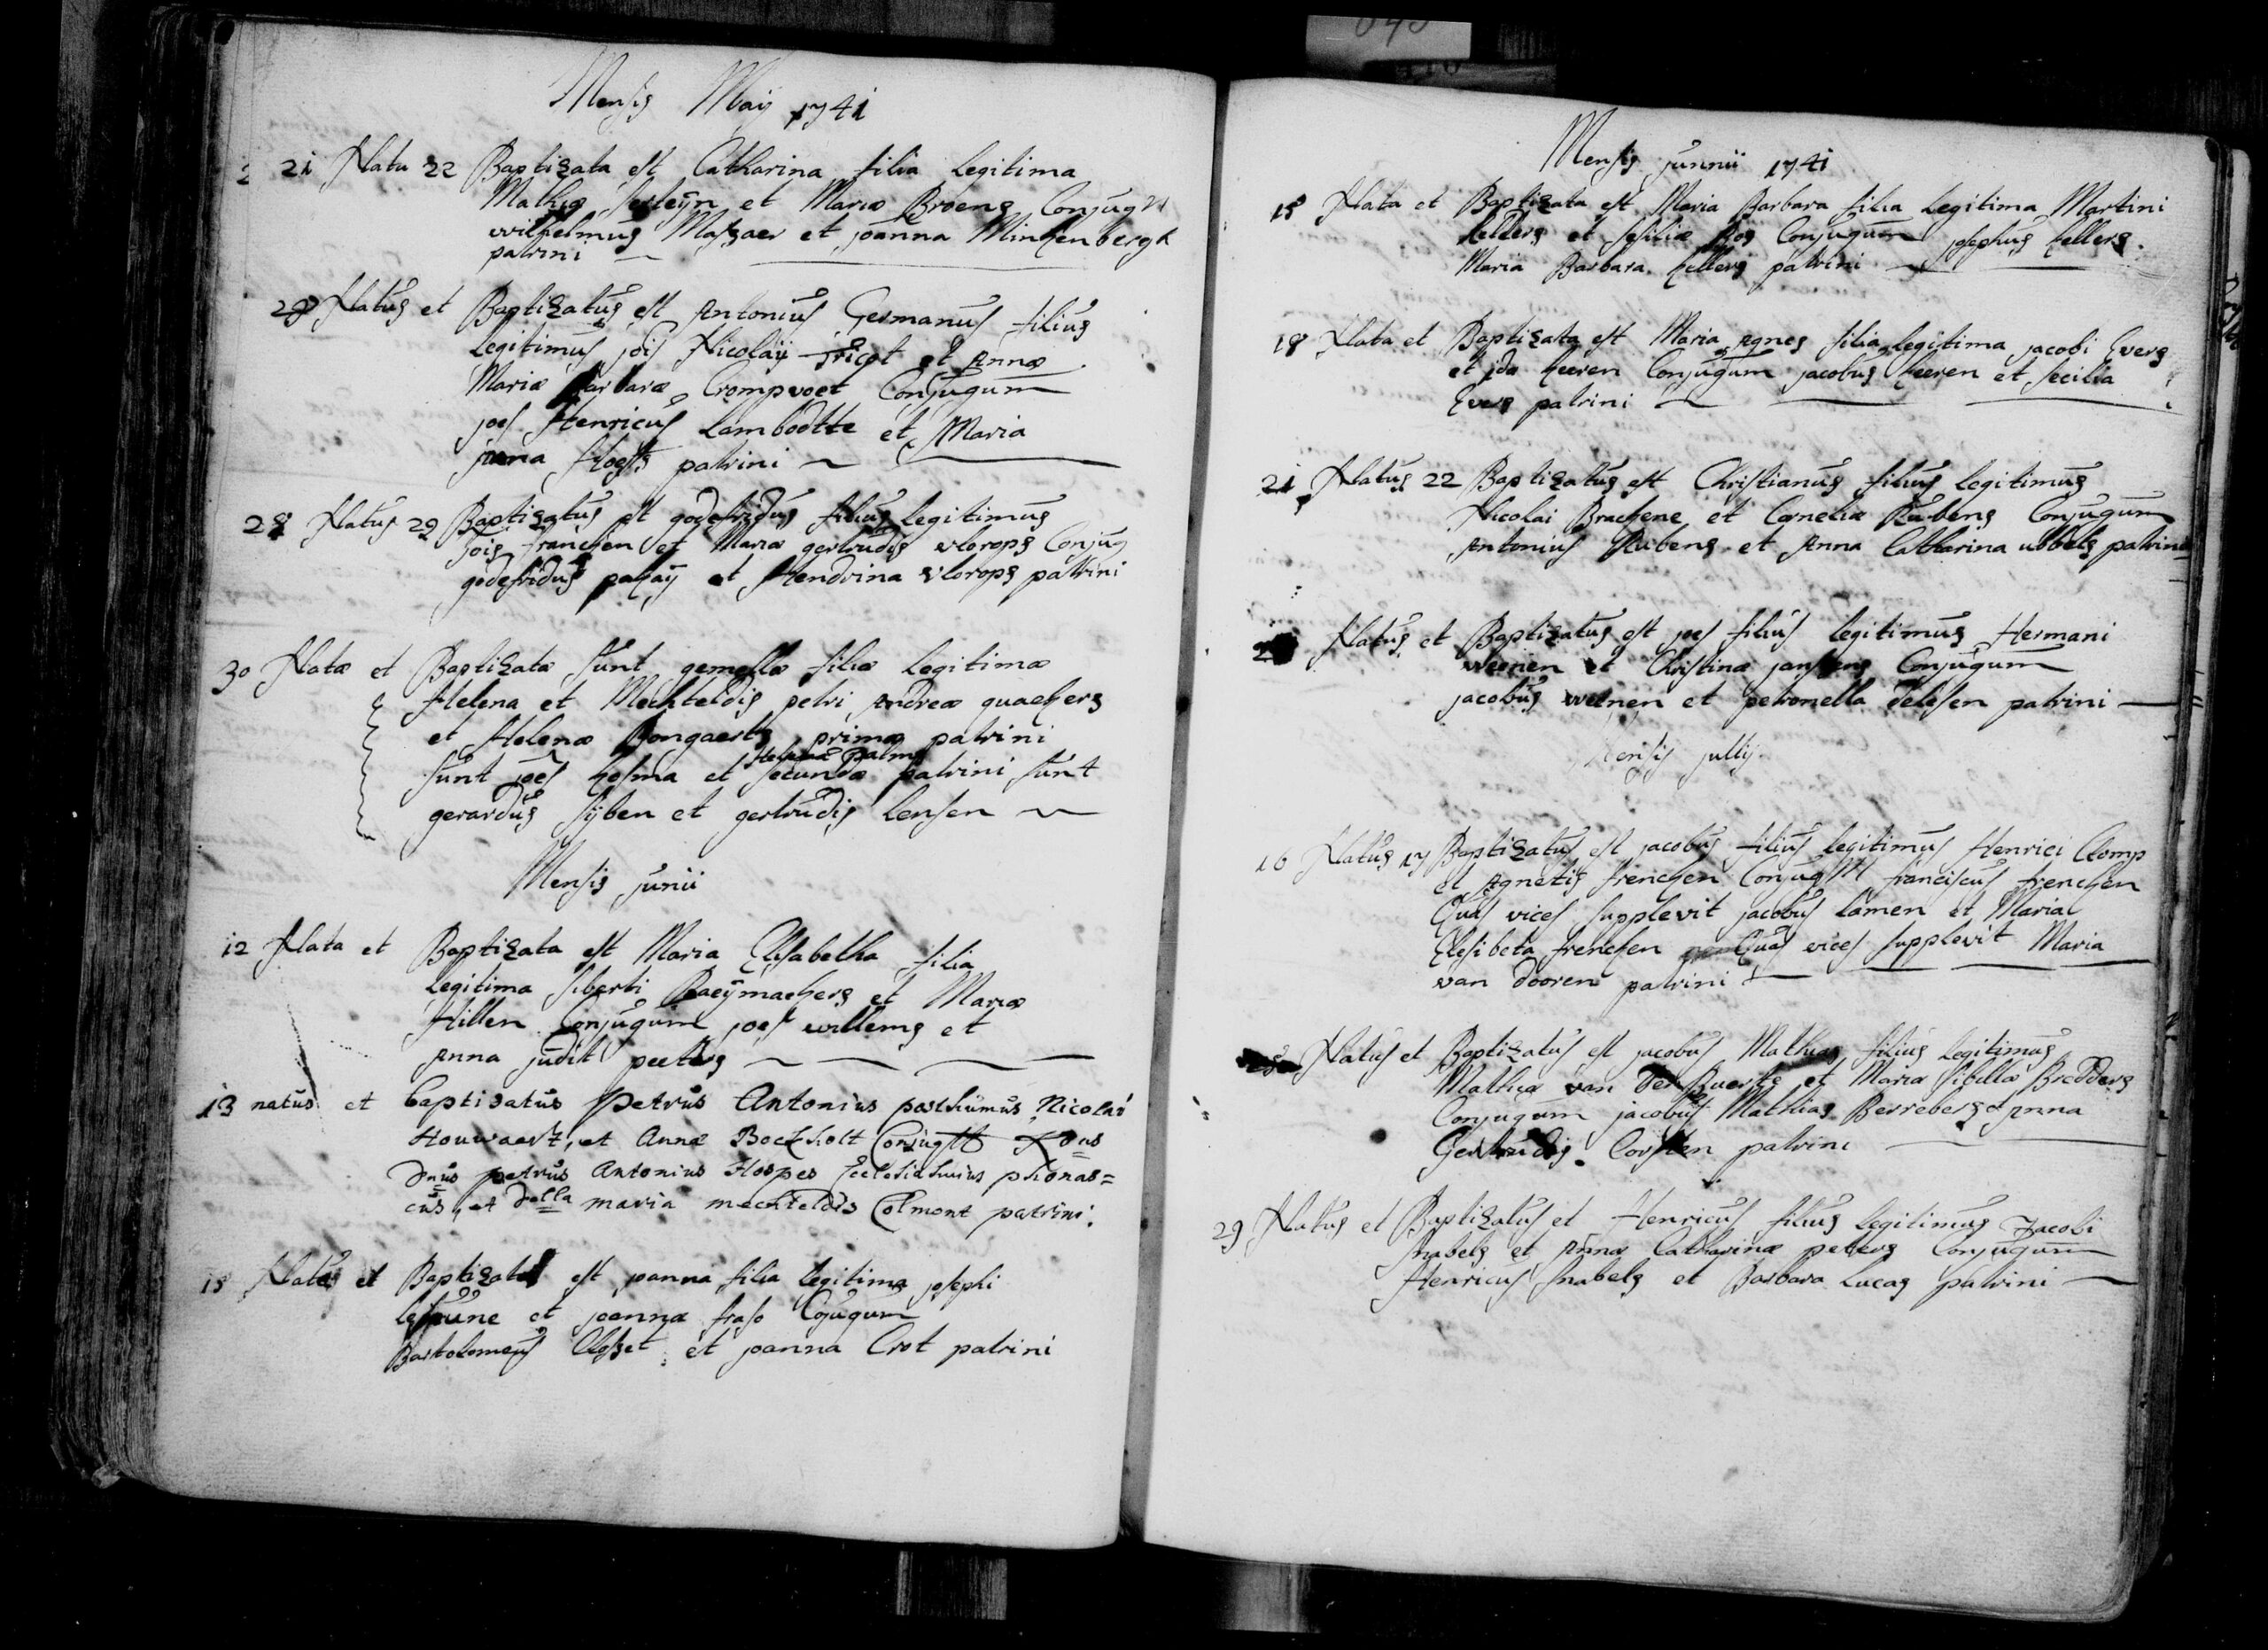 Mensis Maij 1741
21 Nata 22 Baptizata est Catharina filia legitima
Mathiæ et Mariæ Broens Conjug
wilhelmus et joanna Minkenbergh
patrini
Natus et Baptizatus est Antonius Germanus filius
legitimus jois Nicolaij Tricot et Annæ
Mariæ Barbaræ Crompvoet Conjugum
joes Henricus Lambodtte et Maria
patrini
28 Natus 29 Baptizatus est godefridus filius legitimus
jois francken et Mariæ gertrudis vlorops Conjug
godefridus et Hendrina vlorops patrini
30 Natæ et Baptizatæ sunt gemellæ filiæ legitimæ
Helena et Mechteldis petri Andreæ quaekers
et Helenæ Bongaerts primæ patrini
sunt joes et Helena Palms secundæ patrini sunt
gerardus sijben et gertrudis lensen
Mensis junii
12 Nata et Baptizata est Maria Elisabetha filia
legitima siberti Raeijmaekers et Mariæ
Hillen Conjugum joes willems et
Anna judit peeters
13 natus et baptisatus Petrus Antonius posthumus Nicolai
Houwaert, et Annæ Bockholt
Dnus petrus Antonius Hospes Ecclesiæ huius phonas=
cus, et dlla maria mechteldis Colmont patrini.
15 et Baptizata est joanna filia legitima josephi
lejeune et joannæ fraso Cojugum
Bartolomeus Closset et joanna Crot patrini
Mensis junnii 1741
15 Nata et Baptizata est Maria Barbara filia legitima Martini
kellers et sesiliæ Ros Conjugum josephus kellers.
Maria Barbara kellers patrini
18 Nata et Baptizata est Maria Agnes filia legitima jacobi Evers
et jda keeren Conjugum jacobus keeren et secilia
Evers patrini
21 Natus 22 Baptizatus est Christianus filius legitimus
Nicolai Brackene et Corneliæ Rubens Conjugum
Antonius Rubens et Anna Catharina ubbels patrini
Natus et Baptizatus est joes filius legitimus Hermani
weenen et Christinæ janssens Conjugum
jacobus weenen et petronella patrini
Mensis jullij
16 Natus 17 Baptizatus est jacobus filius legitimus Henrici Clomp
et Agnetis frencken Conjug franciscus frencken
Cuus vices supplevit jacobus lamen et Maria
Elesibeta frencken Cuus vices supplevit Maria
van dooren patrini
Natus et Baptizatus est jacobus Mathias filius legitimus
Mathiæ van der et Mariæ sibillæ Bredders
Conjugum jacobus Mathias et Anna
Gertrudis Corsten patrini
29 Natus et Baptizatus et Henricus filius legitimus Jacobi
snabels et Annæ Catharinæ peters Conjugum
Henricus snabels et Barbara Lucas patrini